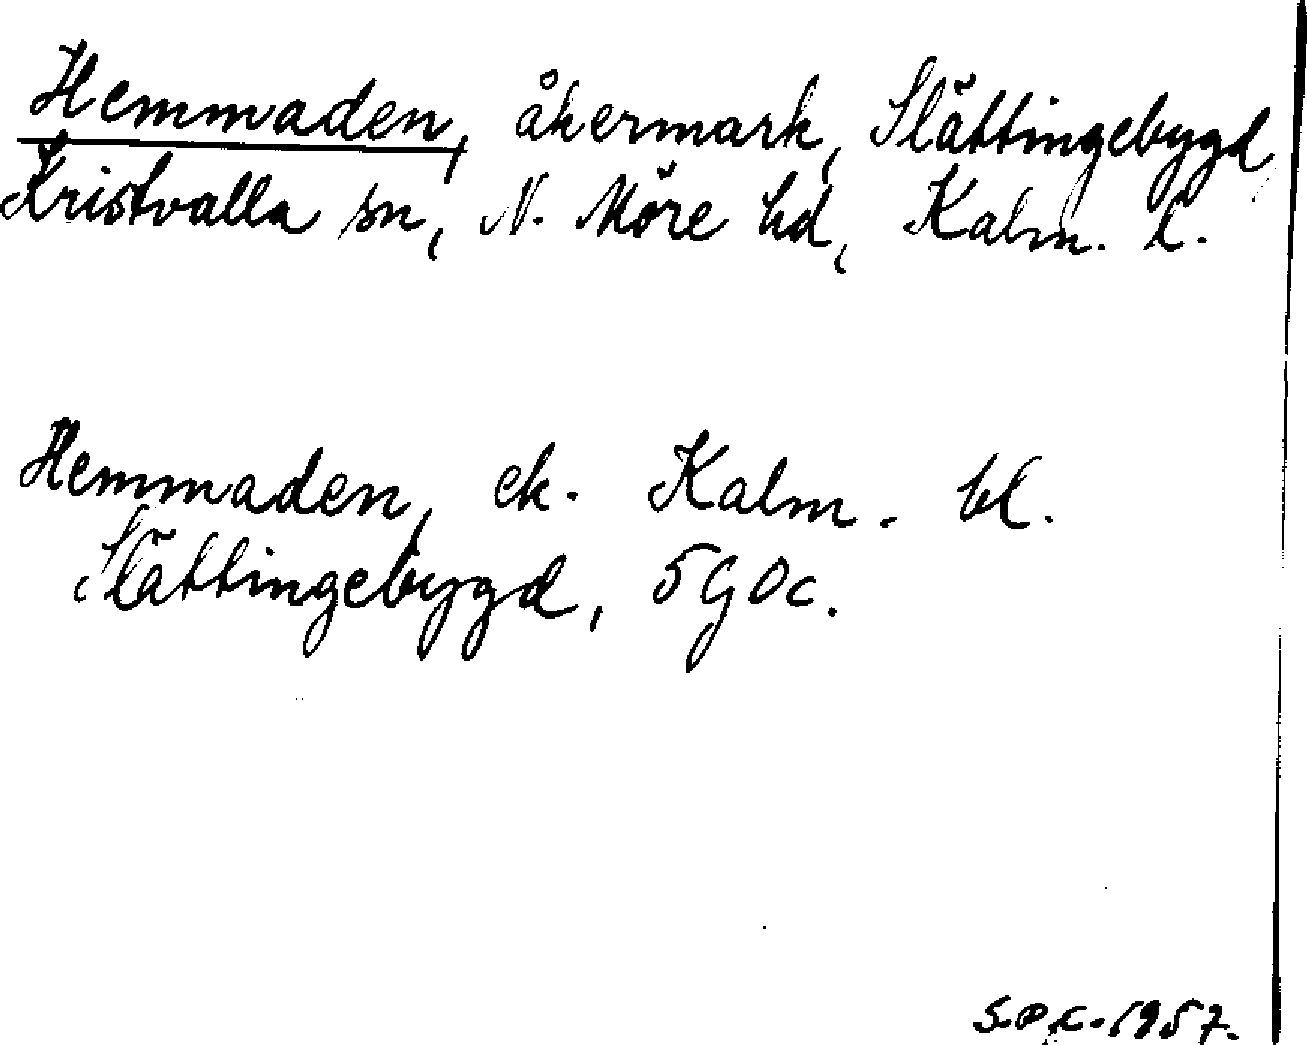 Hemmaden, åkermark, Slättingebygd
Kristvalla sn, N. Möre hd, Kalm. l.
Hemmaden, ek. Kalm. bl.
Slättingebygd, 5GOc.
S.P.C. 1957.